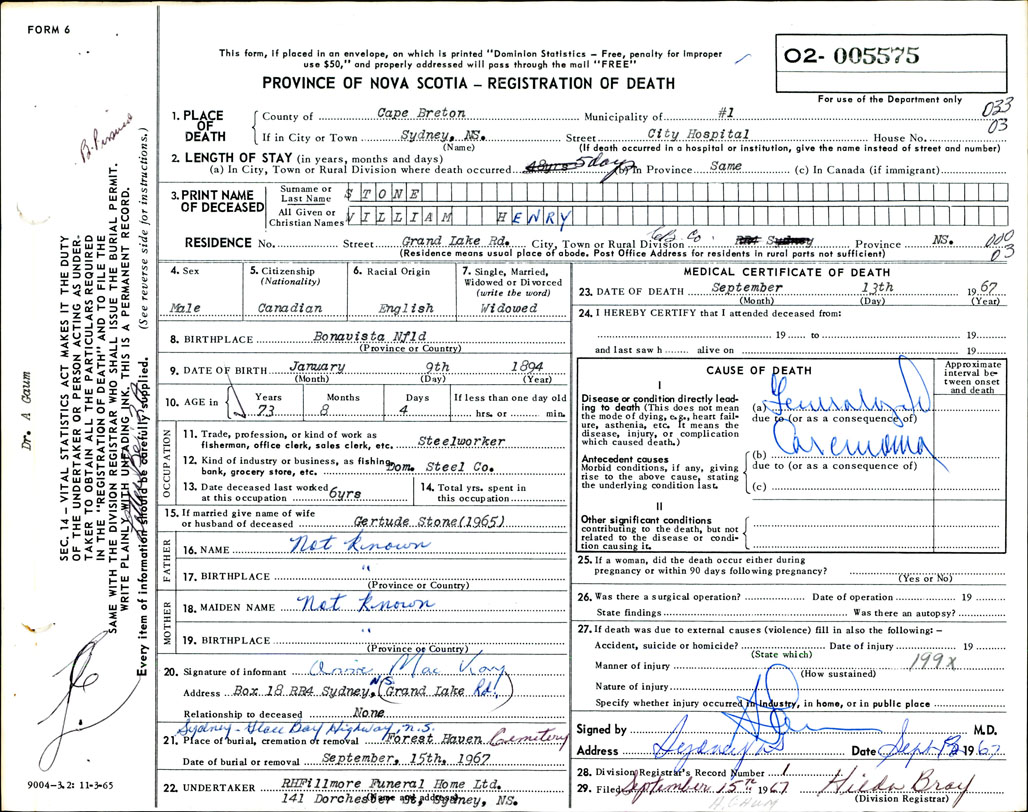 FORM 6
This form, if placed in an envelope, on which is printed "Dominion Statistics – Free, penalty for improper
use $50," and properly addressed will pass through the mail "FREE"
PROVINCE OF NOVA SCOTIA – REGISTRATION OF DEATH
02- 005575
For use of the Department only
033
03
1. PLACE OF DEATH
County of Cape Breton Municipality of #1
If in City or Town Sydney, NS. Street City Hospital House No.
(Name) (If death occurred in a hospital or institution, give the name instead of street and number)
2. LENGTH OF STAY (in years, months and days)
(a) In City, Town or Rural Division where death occurred 5 days (b) In Province Same (c) In Canada (if immigrant)
3. PRINT NAME OF DECEASED
Surname or Last Name STONE
All Given or Christian Names WILLIAM HENRY
RESIDENCE No. Street Grand Lake Rd. City, Town or Rural Division CB Co RR4 Sydney Province NS. 000
03
(Residence means usual place of abode. Post Office Address for residents in rural parts not sufficient)
4. Sex
Male
5. Citizenship
(Nationality)
Canadian
6. Racial Origin
English
7. Single, Married,
Widowed or Divorced
(write the word)
Widowed
8. BIRTHPLACE Bonavista Nfld
(Province or Country)
9. DATE OF BIRTH January 9th 1894
(Month) (Day) (Year)
10. AGE in Years Months Days If less than one day old
73 8 4 hrs. or min.
OCCUPATION
11. Trade, profession, or kind of work as
fisherman, office clerk, sales clerk, etc. Steelworker
12. Kind of industry or business, as fishing,
bank, grocery store, etc. Dom. Steel Co.
13. Date deceased last worked
at this occupation 6yrs
14. Total yrs. spent in
this occupation
15. If married give name of wife
or husband of deceased Gertude Stone(1965)
FATHER
16. NAME Not known
17. BIRTHPLACE "
(Province or Country)
MOTHER
18. MAIDEN NAME Not known
19. BIRTHPLACE "
(Province or Country)
20. Signature of informant Annie Mac Kay
Address Box 18 RR4 Sydney, NS (Grand Lake Rd.)
Relationship to deceased None
Sydney-Glace Bay Highway, N.S.
21. Place of burial, cremation or removal Forest Haven Cemetery
Date of burial or removal September, 15th, 1967
22. UNDERTAKER RHFillmore Funeral Home Ltd.
(Name and address)
141 Dorchester St, Sydney, NS.
MEDICAL CERTIFICATE OF DEATH
23. DATE OF DEATH September 13th 1967
(Month) (Day) (Year)
24. I HEREBY CERTIFY that I attended deceased from:
19 to 19
and last saw h alive on 19
CAUSE OF DEATH
Approximate
interval be-
tween onset
and death
I
Disease or condition directly lead-
ing to death (This does not mean
the mode of dying, e.g., heart fail-
ure, asthenia, etc. It means the
disease, injury, or complication
which caused death.)
(a) Generalized
due to (or as a consequence of)
Carcinoma
Antecedent causes
Morbid conditions, if any, giving
rise to the above cause, stating
the underlying condition last.
(b)
due to (or as a consequence of)
(c)
II
Other significant conditions
contributing to the death, but not
related to the disease or condi-
tion causing it.
25. If a woman, did the death occur either during
pregnancy or within 90 days following pregnancy?
(Yes or No)
26. Was there a surgical operation? Date of operation 19
State findings Was there an autopsy?
27. If death was due to external causes (violence) fill in also the following: –
Accident, suicide or homicide? Date of injury 19
(State which)
Manner of injury 199x
(How sustained)
Nature of injury
Specify whether injury occurred in industry, in home, or in public place
Signed by M.D.
Address Sydney NS Date Sept 13 1967
28. Division Registrar's Record Number 1
29. Filed September 15th 1967 Hilda Bray
(Division Registrar)
A. GAUM
Dr. A Gaum
SEC. 14 – VITAL STATISTICS ACT MAKES IT THE DUTY
OF THE UNDERTAKER OR PERSON ACTING AS UNDER-
TAKER TO OBTAIN ALL THE PARTICULARS REQUIRED
IN THE "REGISTRATION OF DEATH" AND TO FILE THE
SAME WITH THE DIVISION REGISTRAR WHO SHALL ISSUE THE BURIAL PERMIT.
WRITE PLAINLY WITH UNFADING INK. THIS IS A PERMANENT RECORD.
Every item of information should be carefully supplied. (See reverse side for instructions.)
9004-3.2: 11-3-65